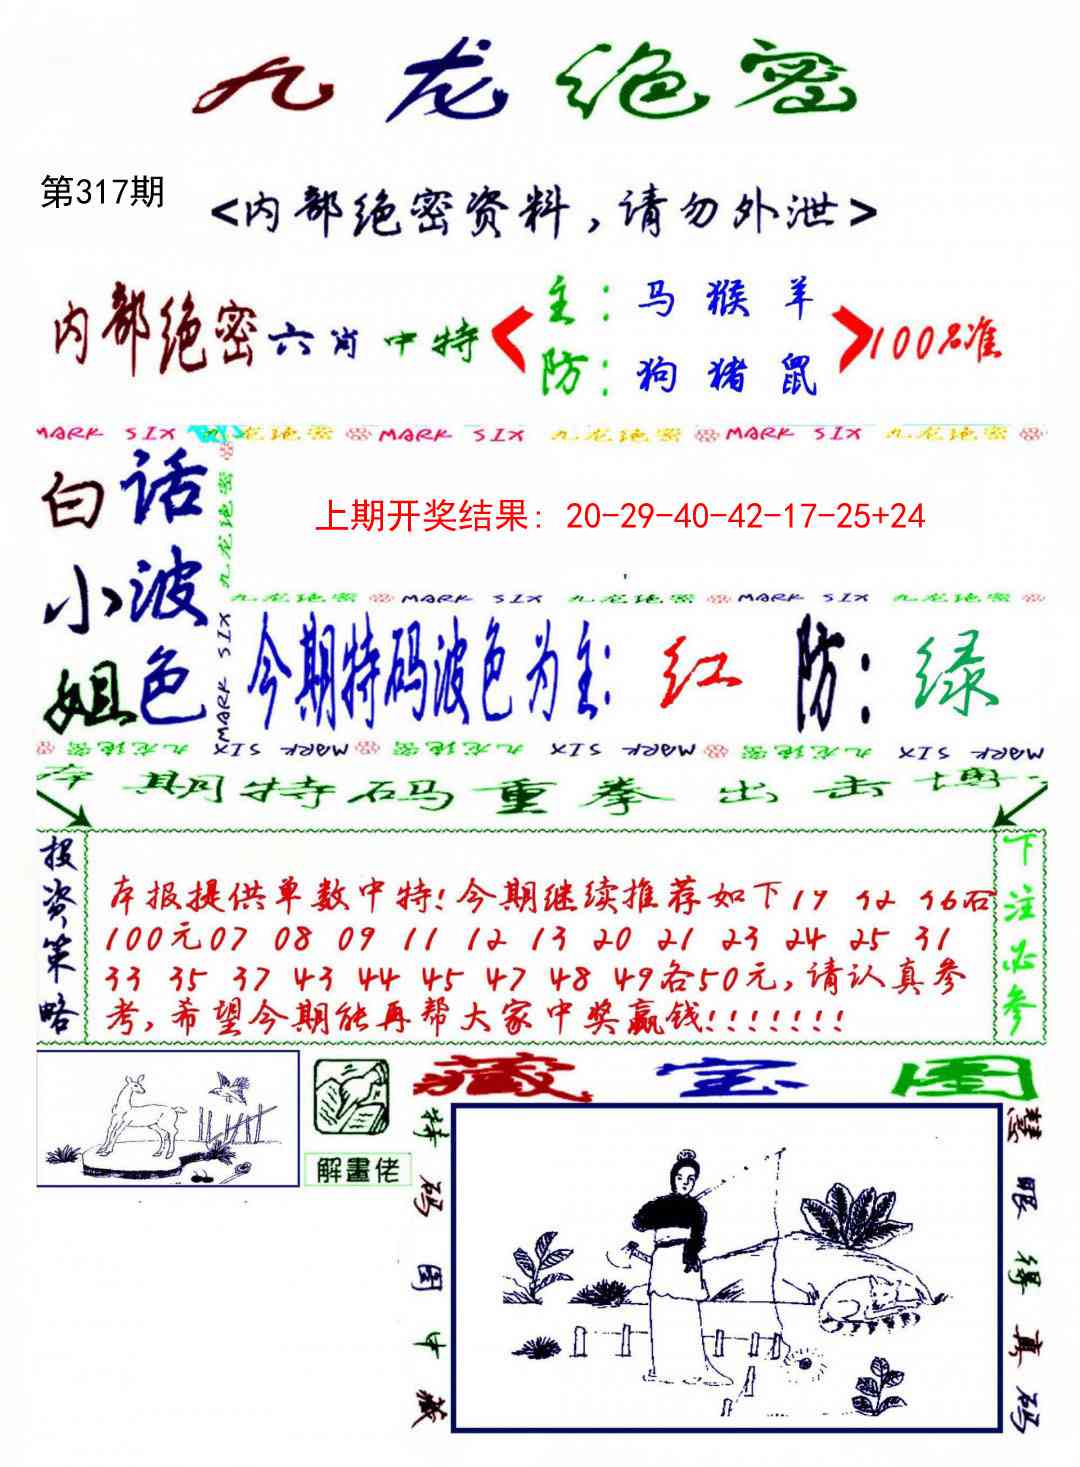 九龙绝密
第317期
<内部绝密资料,请勿外泄>
内部绝密六肖中特
主:马猴羊
防:狗猪鼠
100%准
MARK SIX 九龙绝密 MARK SIX 九龙绝密 MARK SIX 九龙绝密
白小姐
话波色
九龙绝密
MARK SIX
上期开奖结果: 20-29-40-42-17-25+24
九龙绝密 MARK SIX 九龙绝密 MARK SIX 九龙绝密
今期特码波色为主:红 防:绿
九龙绝密 MARK SIX 九龙绝密 MARK SIX 九龙绝密 MARK SIX
本期特码重拳出击博
投资策略
本报提供单数中特!今期继续推荐如下19 42 46各
100元07 08 09 11 12 13 20 21 23 24 25 31
33 35 37 43 44 45 47 48 49各50元,请认真参
考,希望今期能再帮大家中奖赢钱!!!!!!!
下注必参
解畫佬
藏宝图
特码图中藏
慧眼得真码